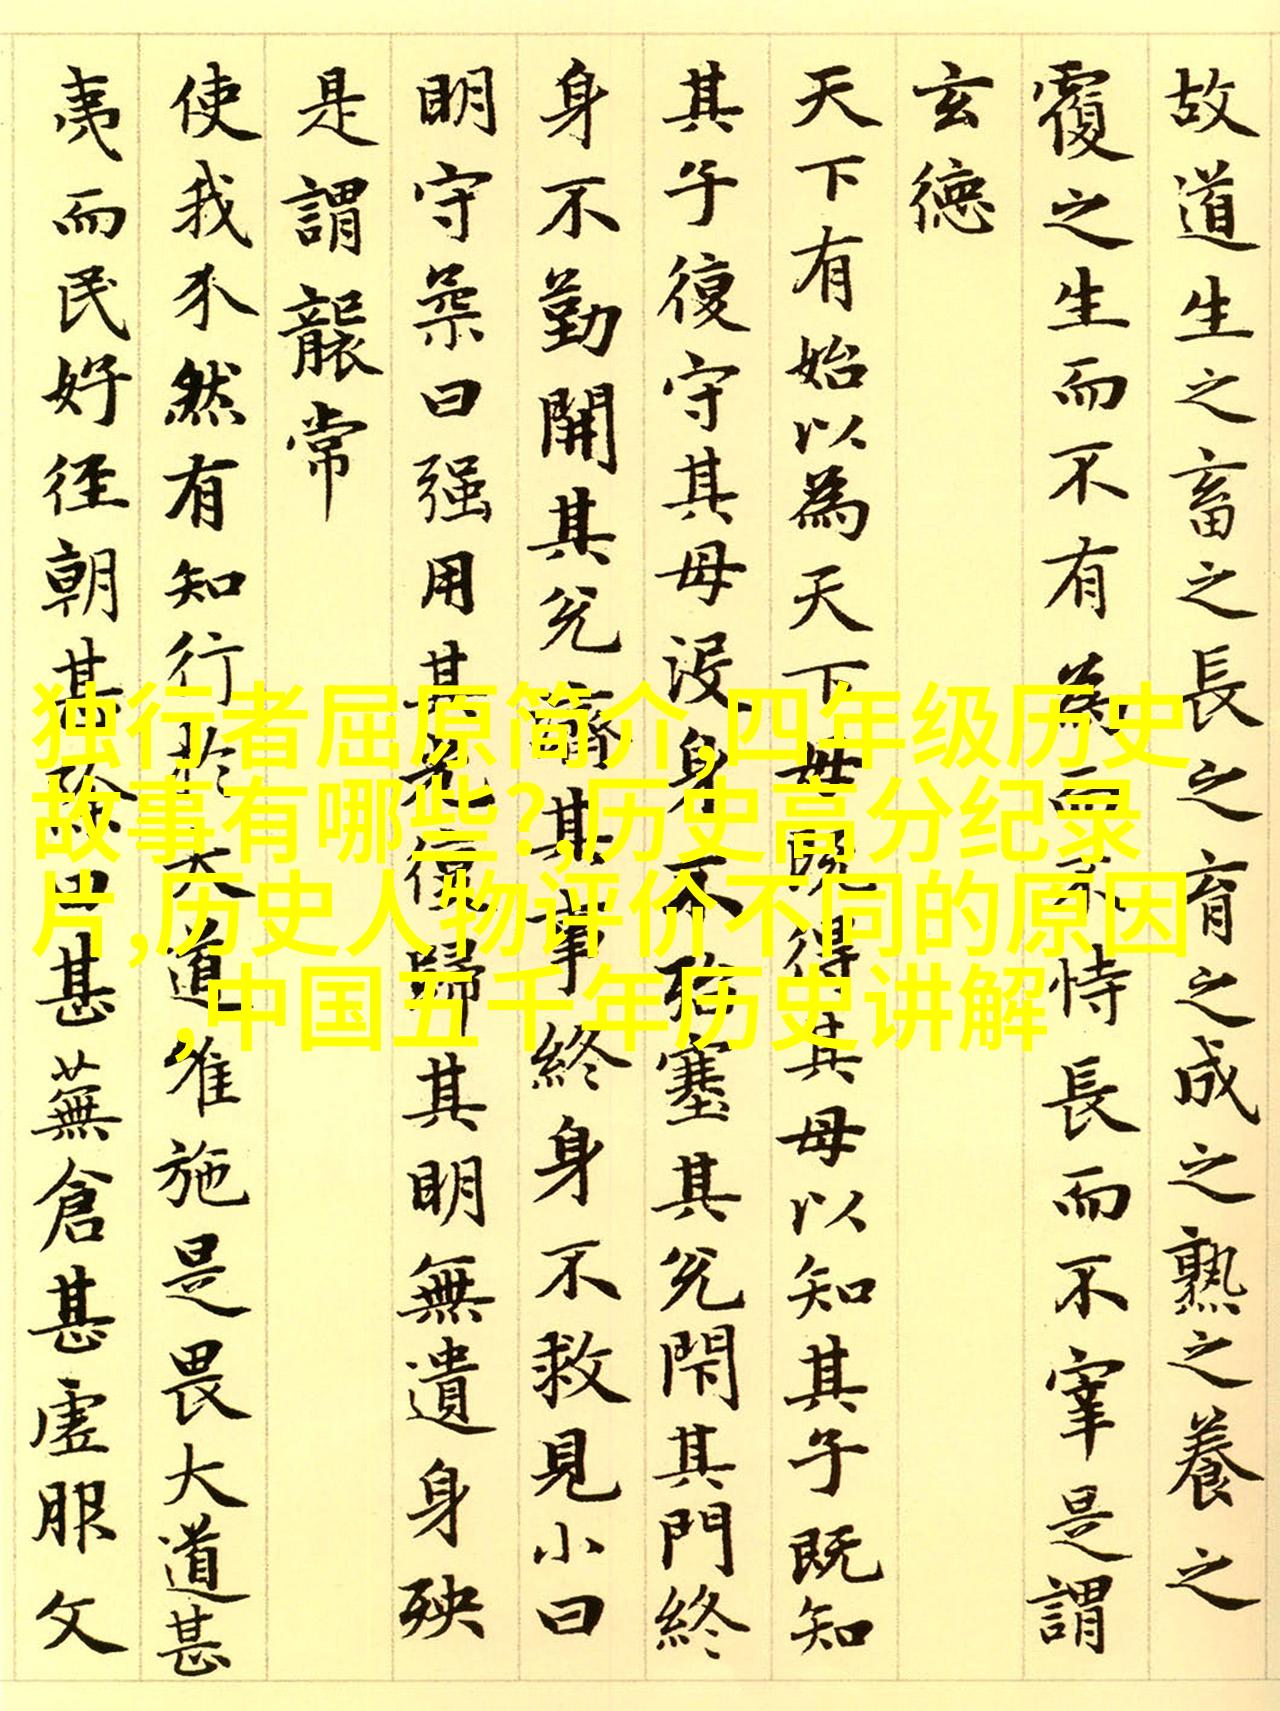 故道生之畜之長之育之成之熟之養之
覆之生而不有為而不恃長而不宰是謂
玄德
天下有始以為天下母既得其母以知其子既知
其子復守其母没身不殆塞其兌閇其門終
身不勤開其兌齊其事終身不救見小曰
明守柔曰强用其光復歸其明無遺身殃
是謂襲常
使我介然有知行於大道唯施是畏大道甚
夷而民好徑朝甚除田甚蕪倉甚虛服文
独行者屈原简介,四年级历史
故事有哪些?,历史高分纪录
片,历史人物评价不同的原因
,中国五千年历史讲解